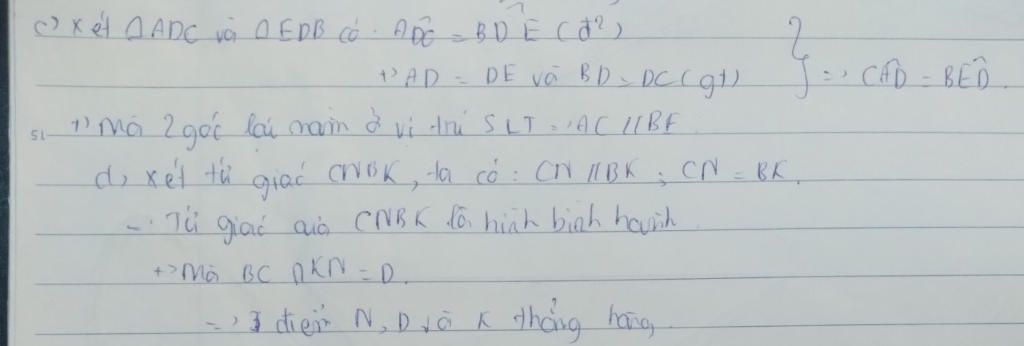 c) Xét ΔADC và ΔEDB có: ADC^ = BDE^ (đ²)
+) AD = DE và BD = DC (gt) } => CAD^ = BED^.
+) Mà 2 góc lại nằm ở vị trí SLT => AC // BE
d) Xét tứ giác CNBK, ta có: CN // BK; CN = BK.
- Tứ giác CNBK là hình bình hành
+) Mà BC ∩ KN = D.
=> 3 điểm N, D và K thẳng hàng.